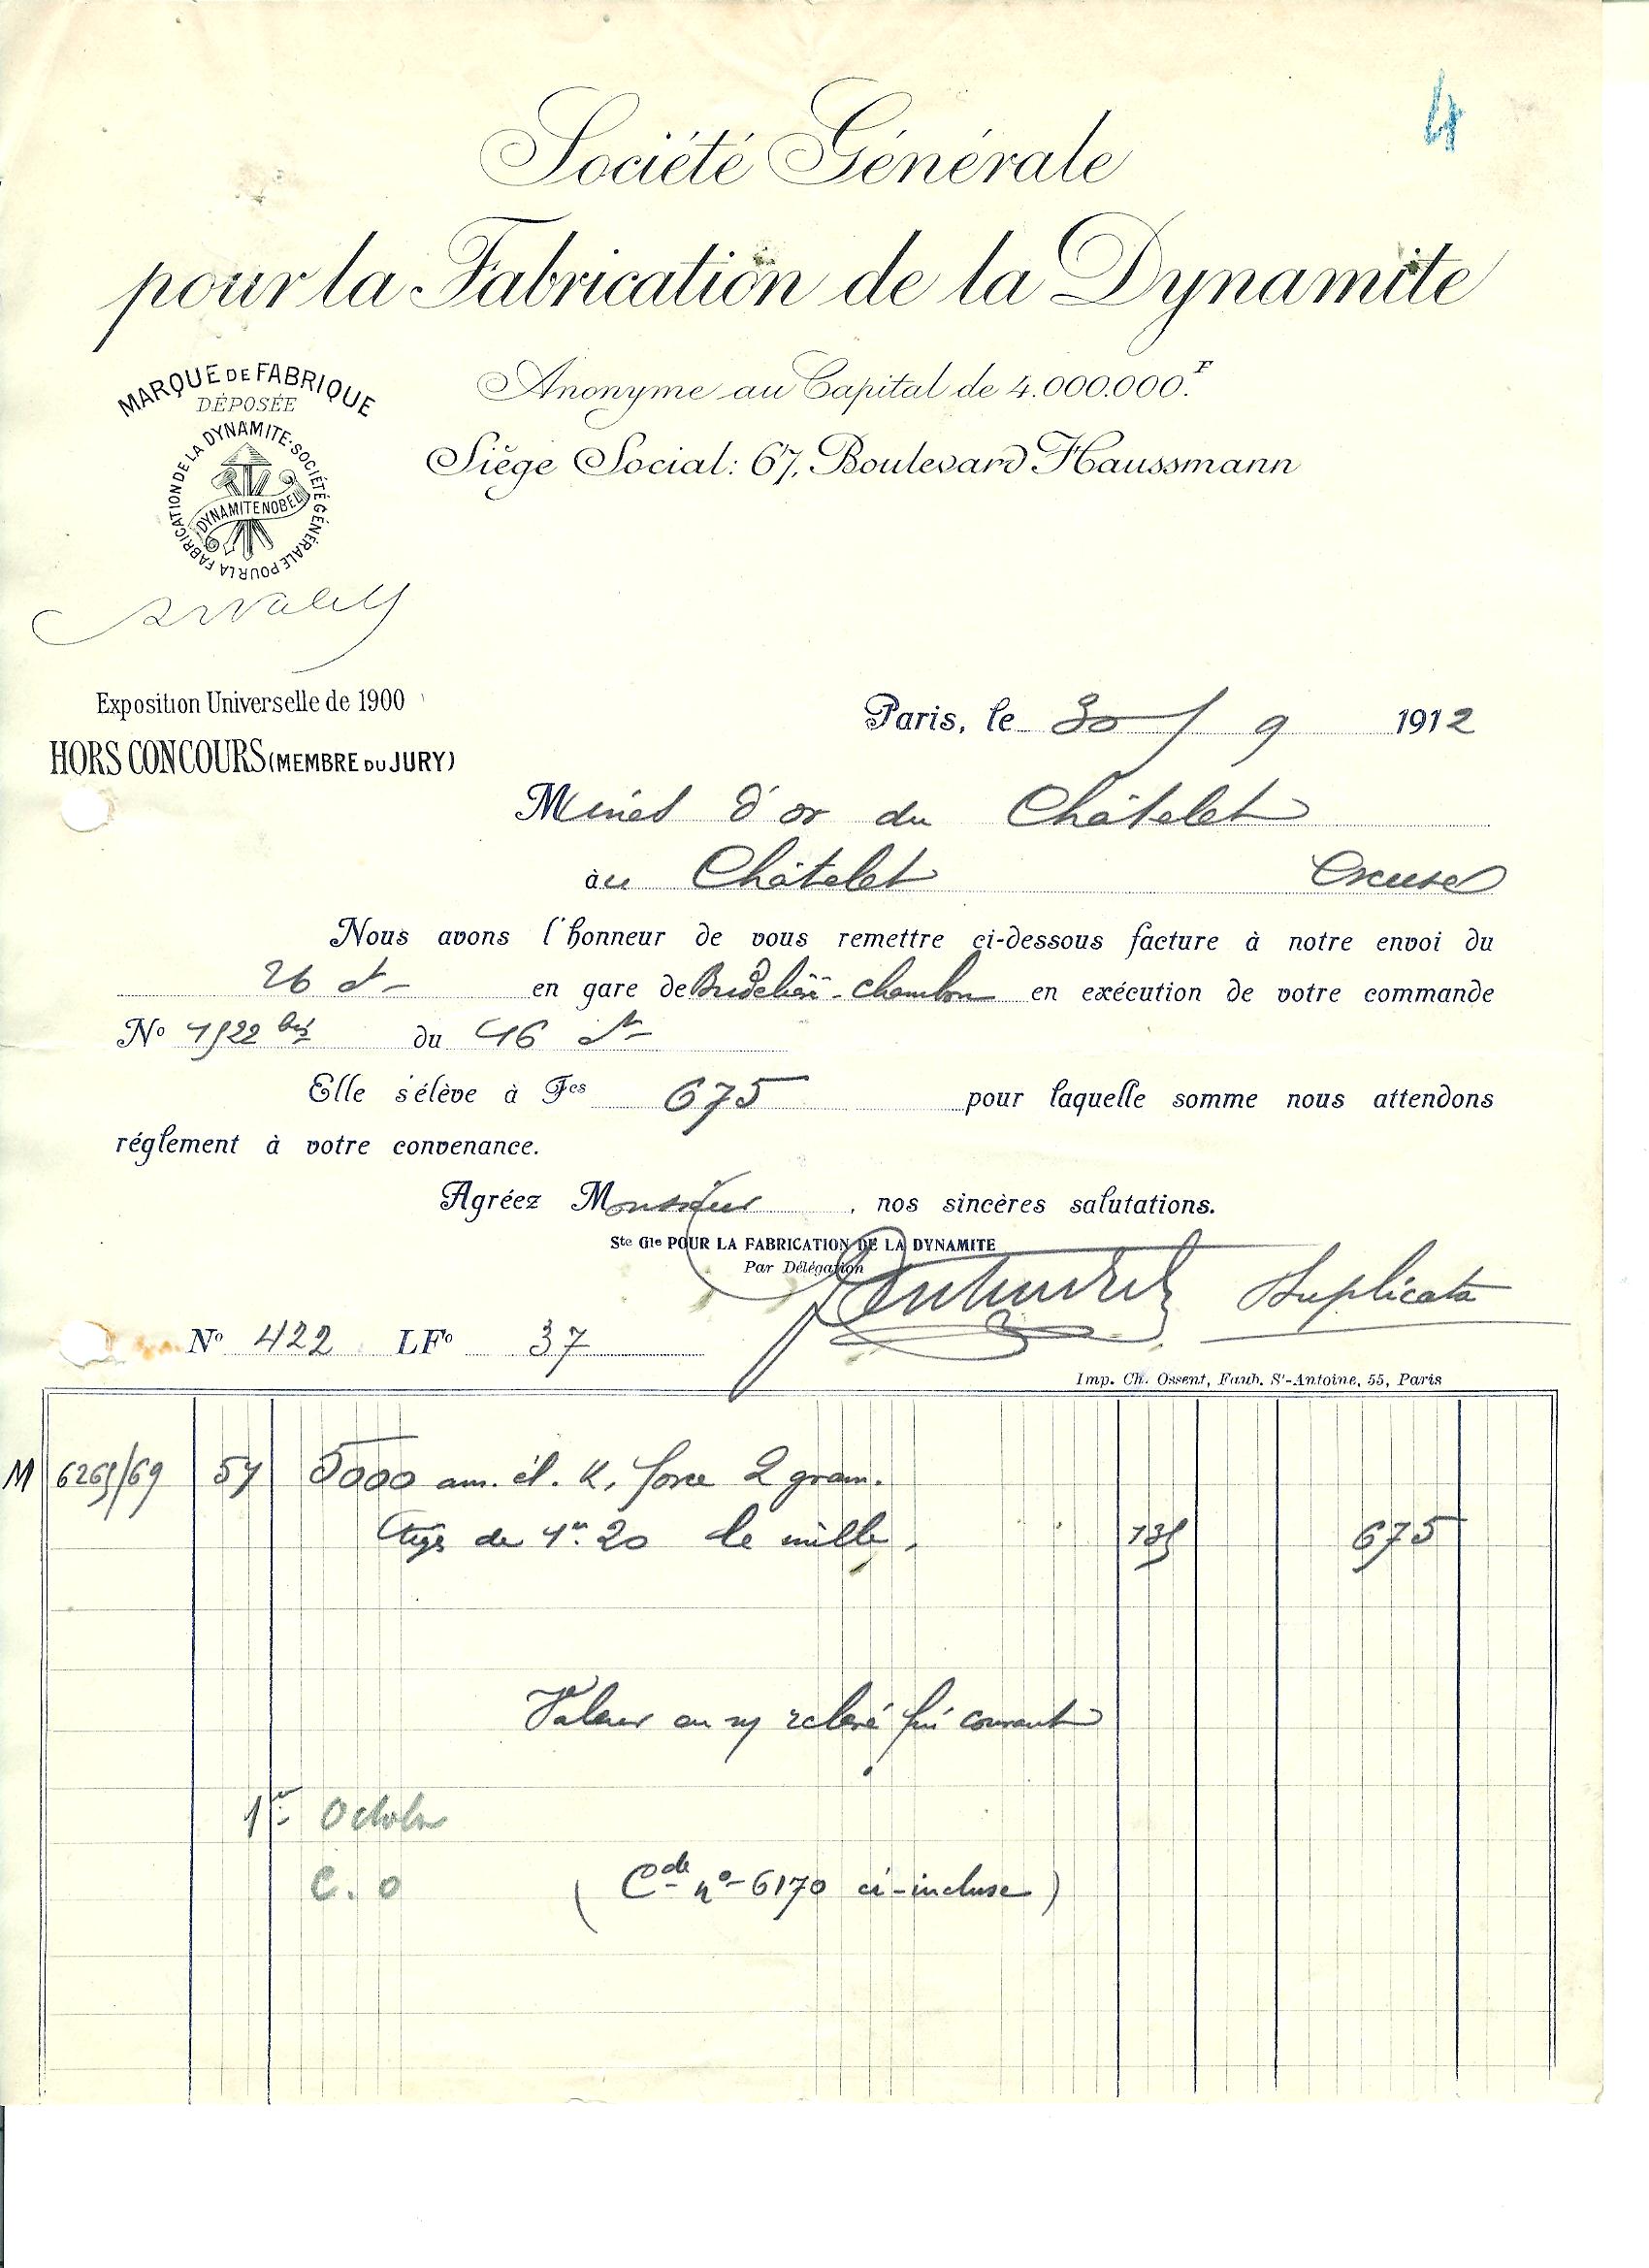 4
Société Générale
pour la Fabrication de la Dynamite
Anonyme au Capital de 4.000.000.F
Siège Social: 67, Boulevard Haussmann
MARQUE DE FABRIQUE
DÉPOSÉE
SOCIÉTÉ GÉNÉRALE POUR LA FABRICATION DE LA DYNAMITE
DYNAMITE NOBEL
Exposition Universelle de 1900
HORS CONCOURS (MEMBRE DU JURY)
Paris, le 30 / 9 1912
Mines d'or du Châtelet
àu Châtelet Creuse
Nous avons l'honneur de vous remettre ci-dessous facture à notre envoi du
26 en gare de Budelière-Chambon en exécution de votre commande
No 1522 bis du 16
Elle s'élève à Fcs 675 pour laquelle somme nous attendons
réglement à votre convenance.
Agréez Monsieur, nos sincères salutations.
Ste Gle POUR LA FABRICATION DE LA DYNAMITE
Par Délégation
Duplicata
No 422 LFo 37
Imp. Ch. Ossent, Faub. St-Antoine, 55, Paris
M 6265/69 57 5000 am. él. K. force 2 gram.
tiges de 1m.20 le mille, 135 675
Valeur en n/ relevé fin courant
1er Octobre
C. O (Cde no 6170 ci-incluse)